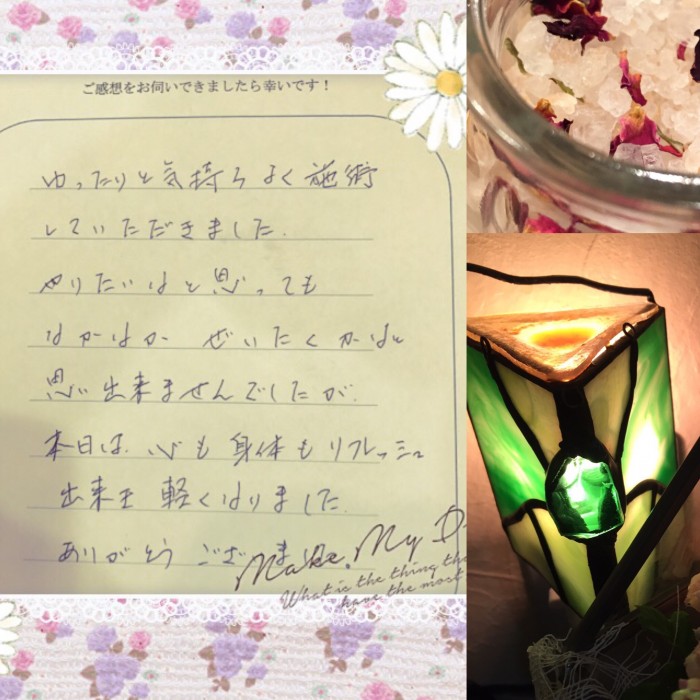 ご感想をお伺いできましたら幸いです！
ゆったりと気持ちよく施術
していただきました.
やりたいなと思っても
なかなか ぜいたくかなと
思い出来ませんでしたが.
本日は.心も身体もリフレッシュ
出来て軽くなりました.
ありがとう ござい
Make My D
What is the thing tha
have the most